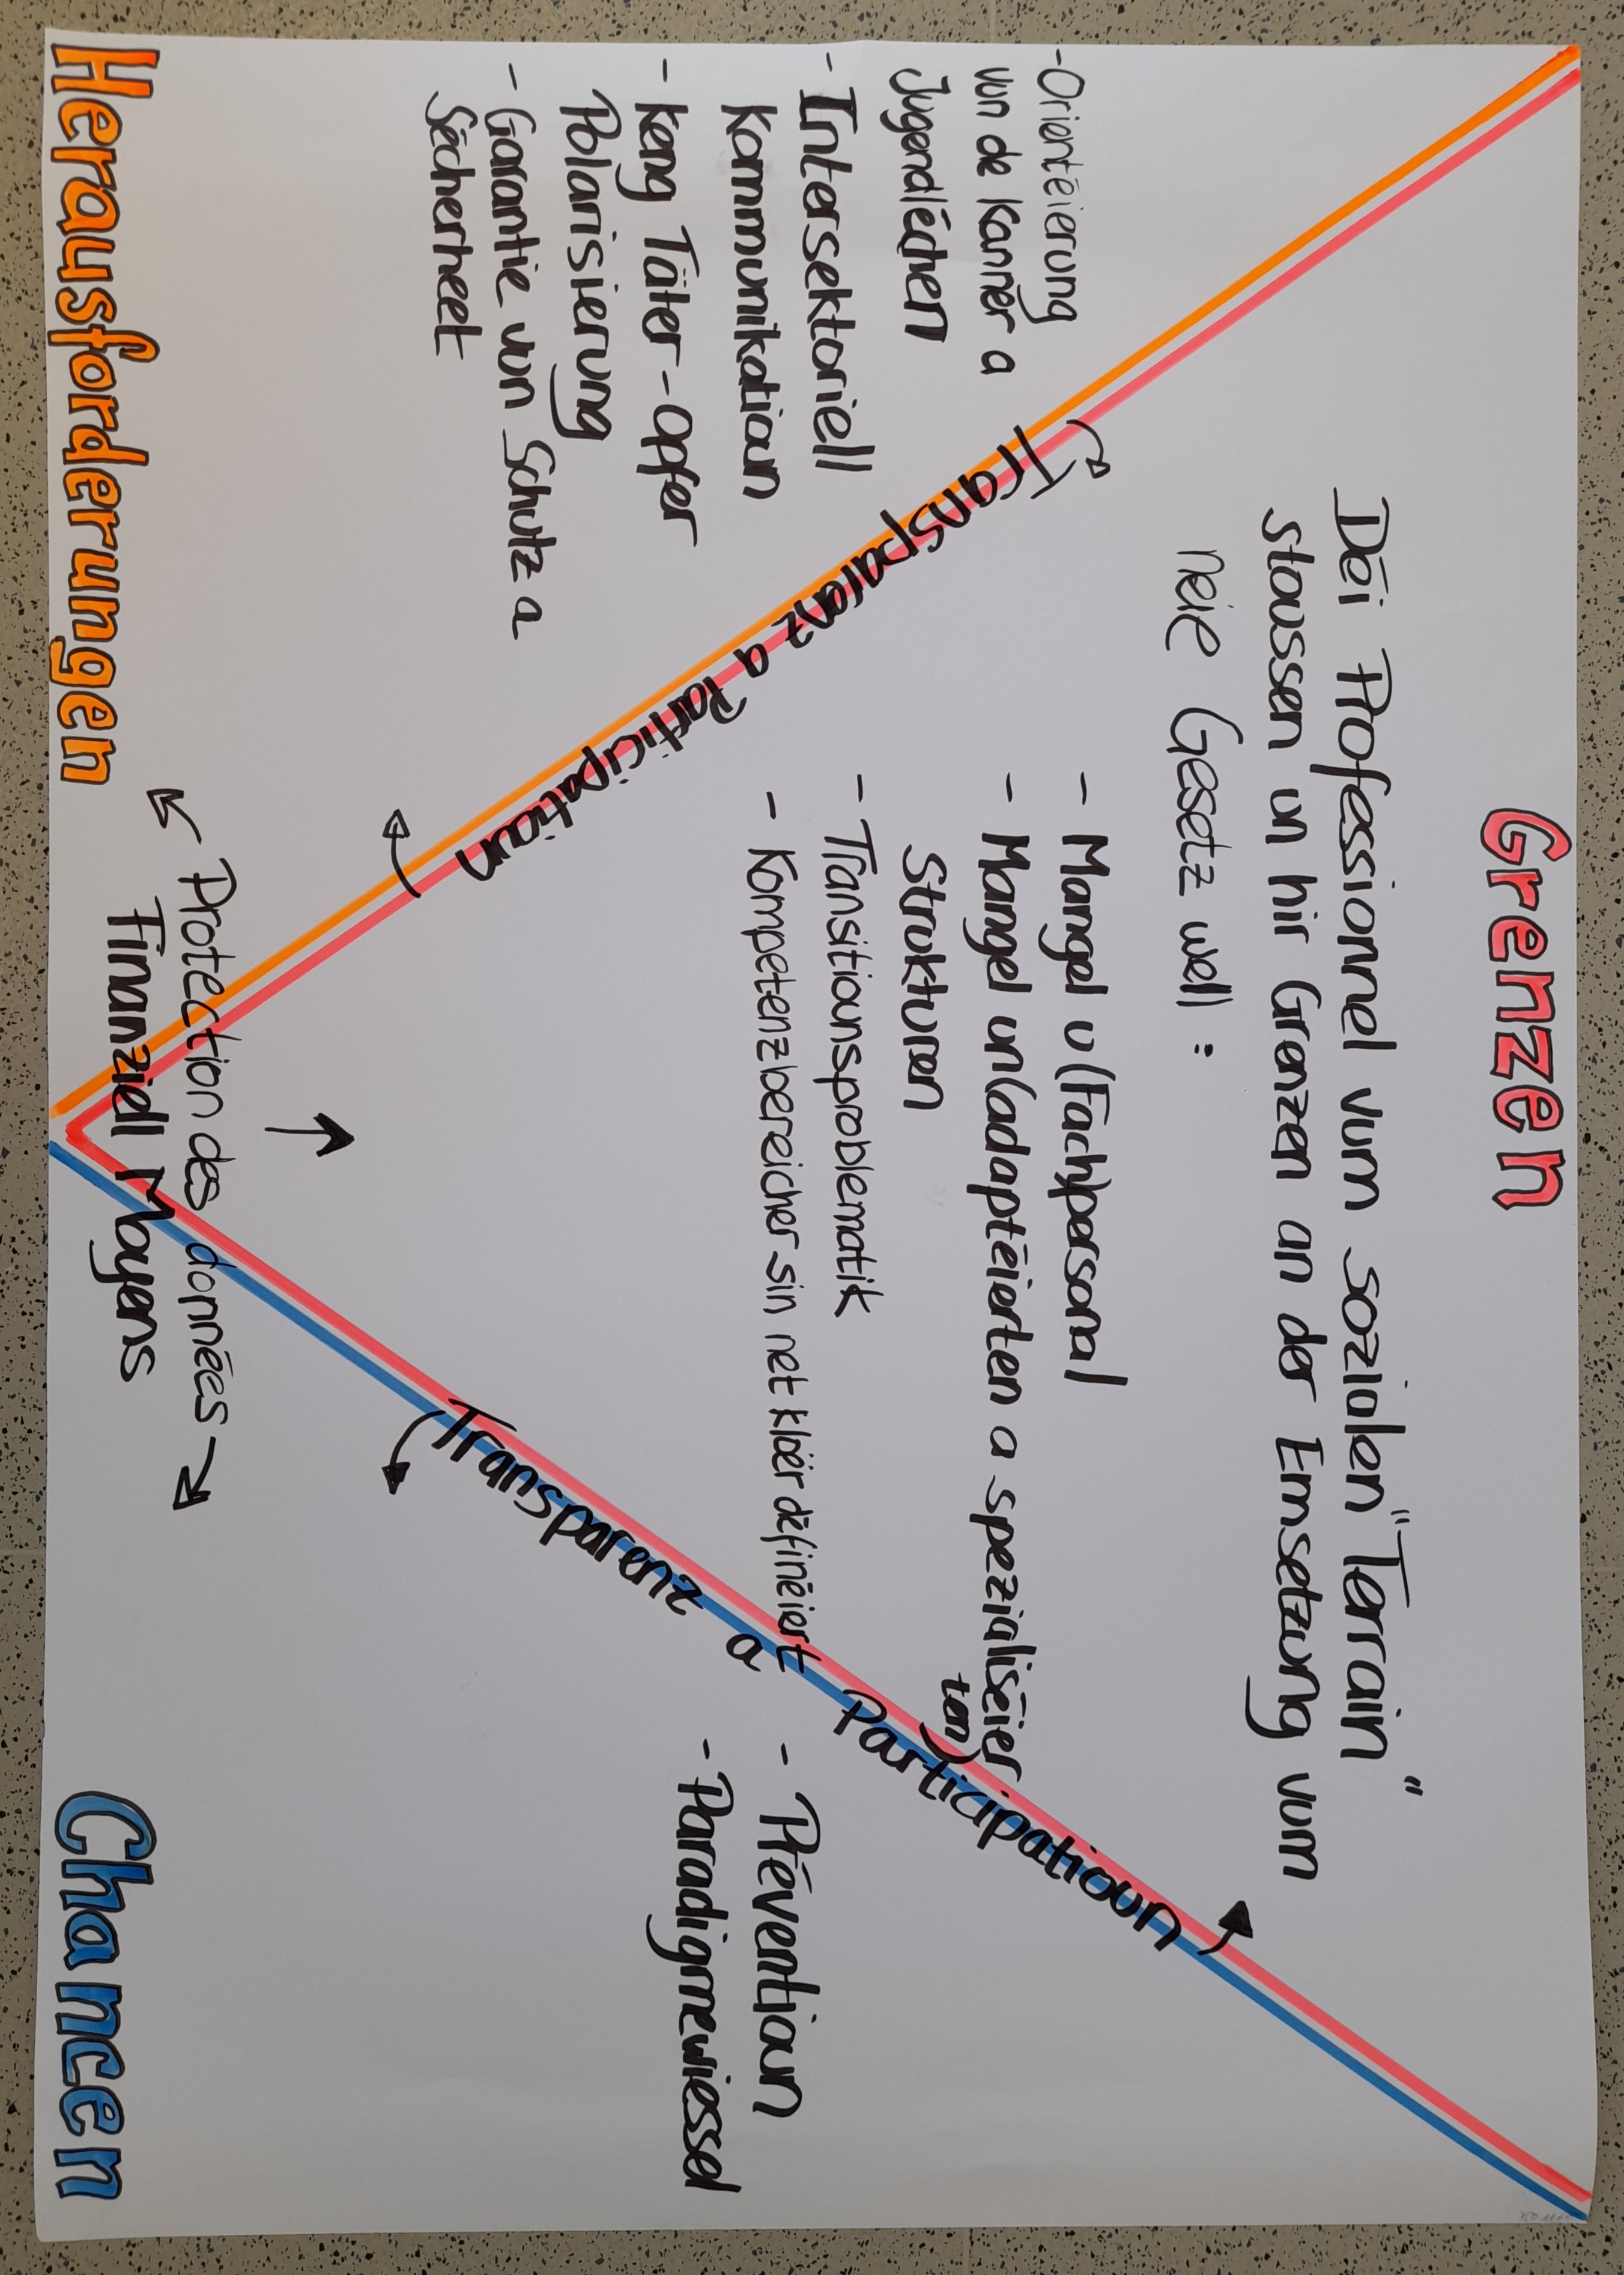 Grenzen
Déi Professionnel vum sozialen "Terrain"
stoussen un hir Grenzen an der Ëmsetzung vum
neie Gesetz well :
- Mangel u (Fach)personal
- Mangel un (adaptéierten a spezialiséier
ten)
Strukturen
- Transitiounsproblematik
- Kompetenzbereicher sin net kloër définéiert
-Orientéierung
vun de Kanner a
Jugendlëchen
- Intersektoriell
Kommunikatioun
- Keng Täter-Opfer
Polarisierung
- Garantie vun Schutz a
Sécherheet
Transparenz a Participatioun
Transparenz a Participatioun
- Préventioun
- Paradigmewiessel
Protection des données
Finanziell Moyens
Herausforderungen
Chancen